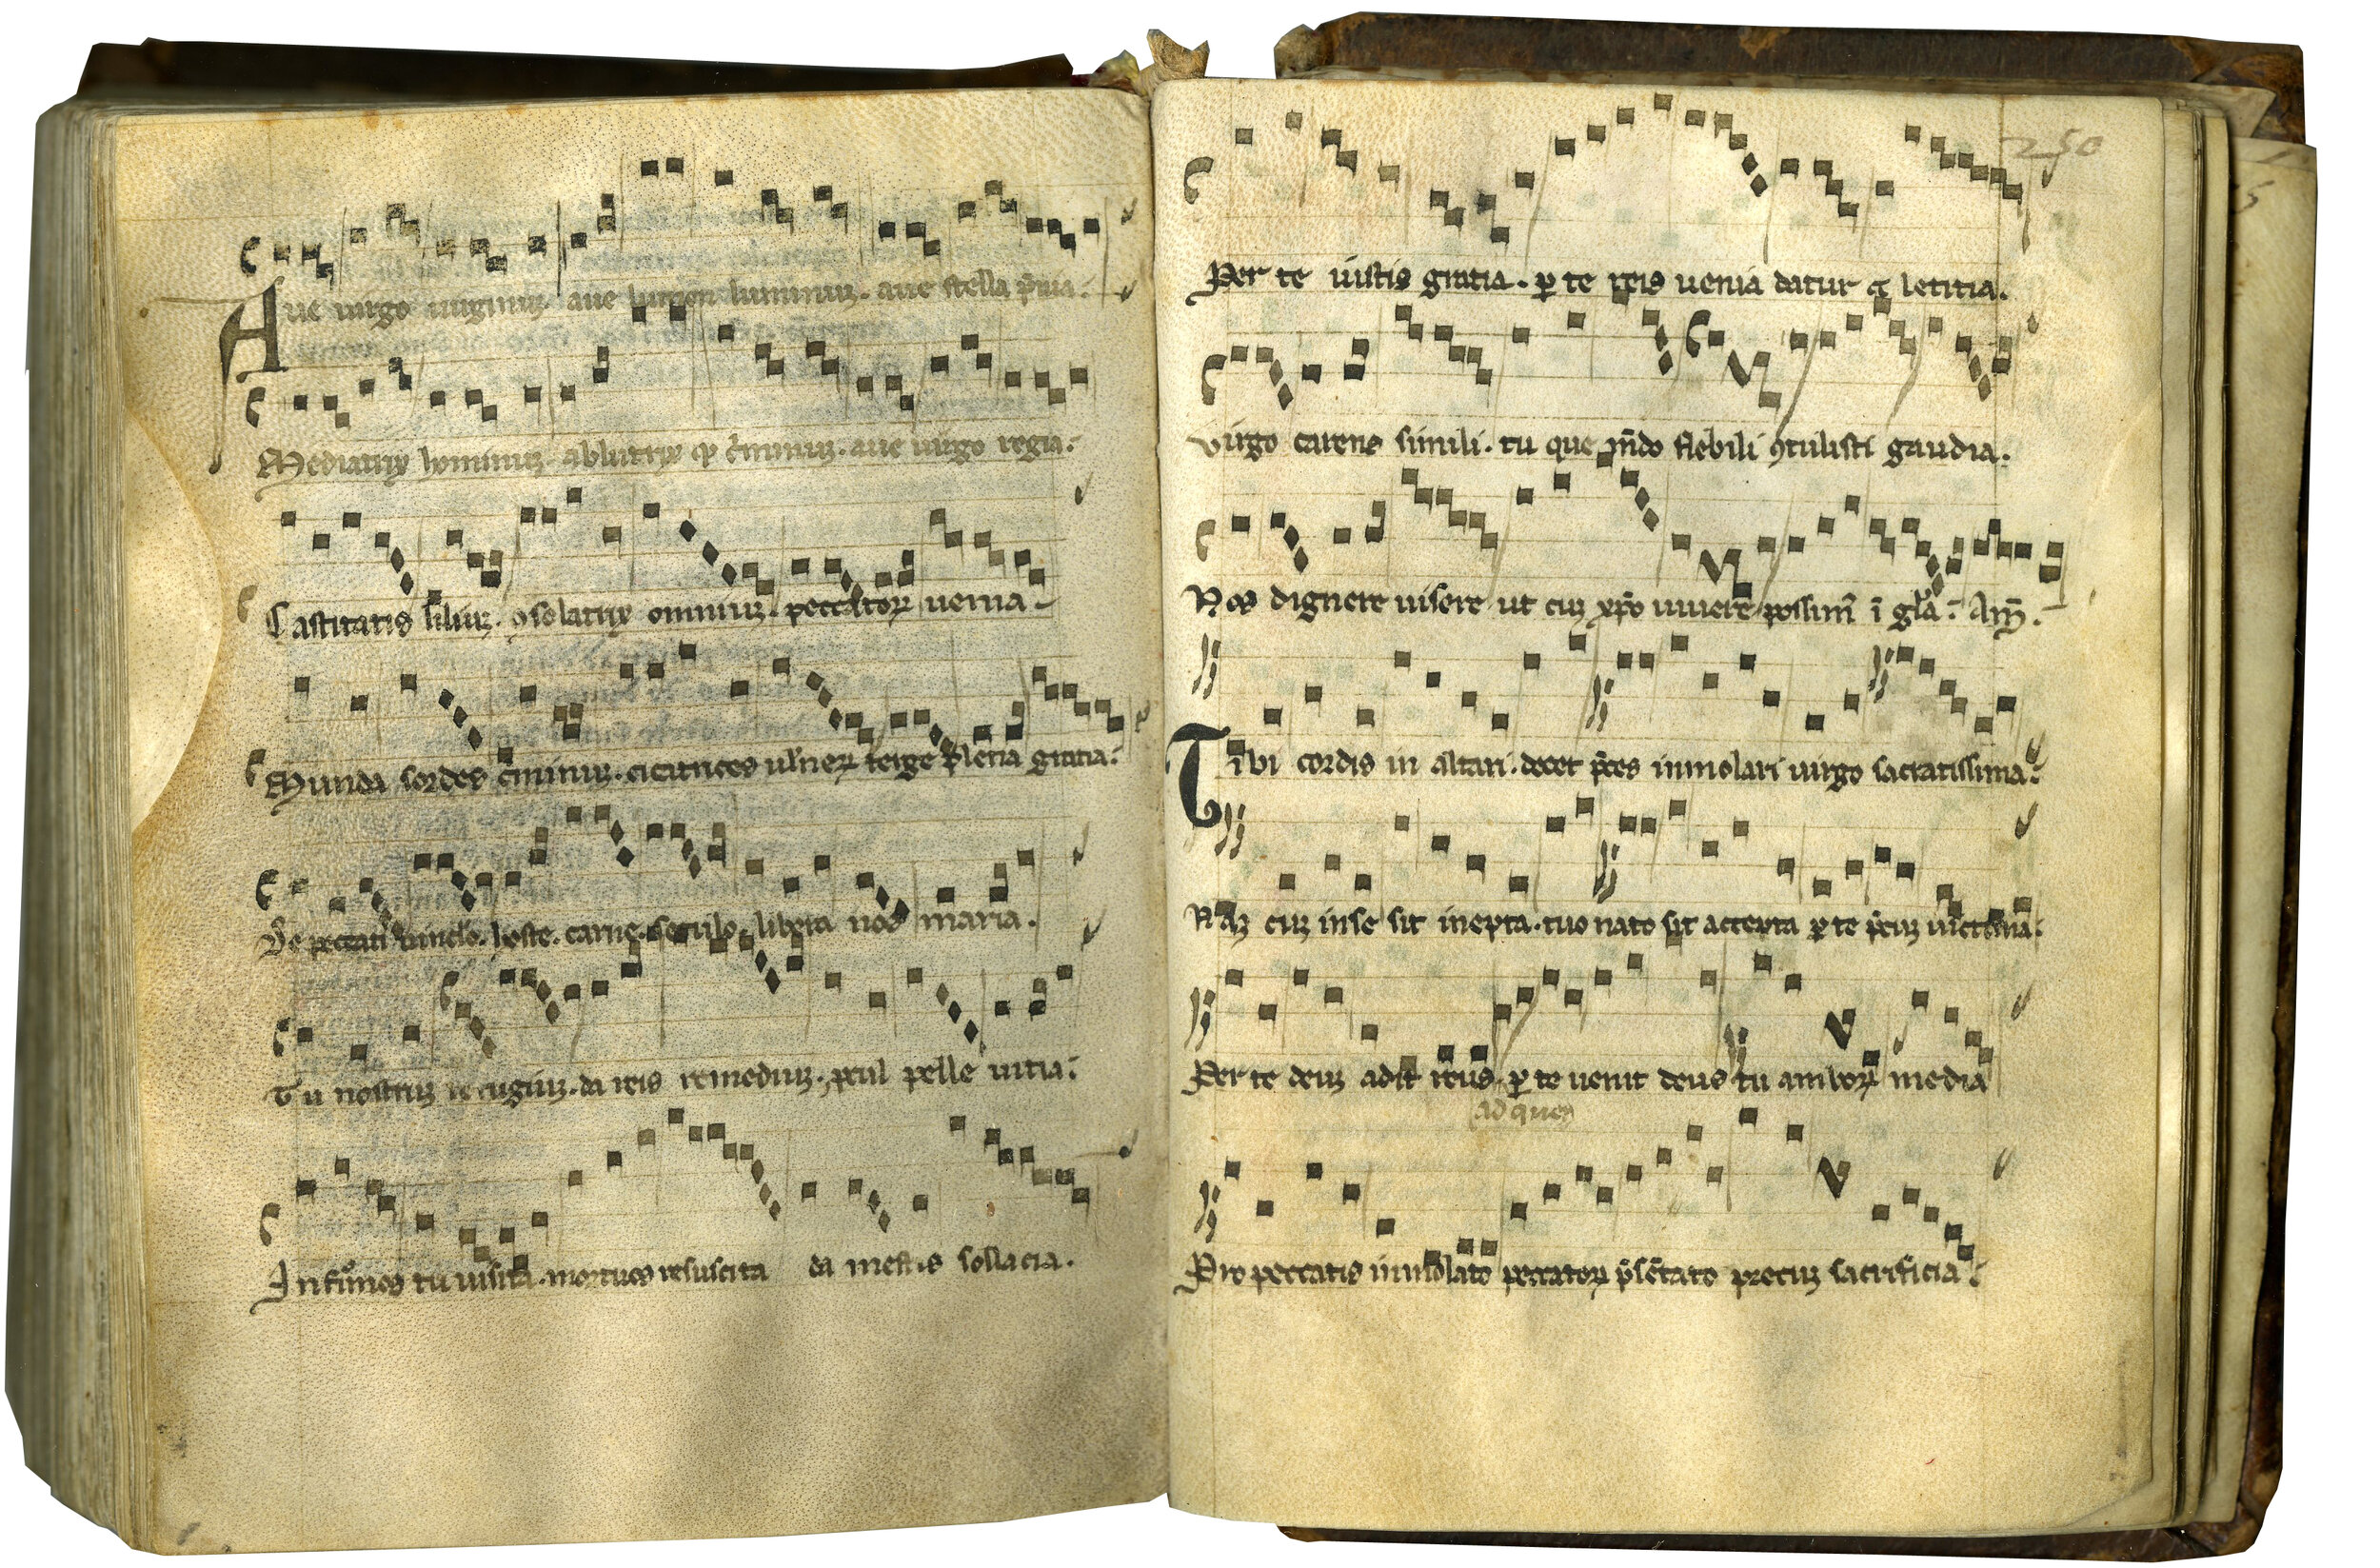 Aue uirgo uirginuꝫ. aue lumen luminuꝫ. aue stella p̄uia.
Mediatrix hominuꝫ. ablutrix ꝙ c̓minuꝫ. aue uirgo regia.
Castitatis liliuꝫ. ꝯsolatrix ominuꝫ. peccatoꝝ uenia
Munda sordes c̓minuꝫ. cicatrices uln̓eꝝ terge plena gratia.
De peccati uinc̓lo. hoste. carne. seculo. libera nos maria.
Tu nostruꝫ refugiuꝫ. da reis remediuꝫ. pcul pelle uitia.
Infirmos tu uisita. mortuos resuscita da mestis sollacia.
250
Per te iustis gratia. ꝑ te reis uenia datur et letitia.
Virgo carens simili. tu que mūdo flebili ꝯtulisti gaudia.
Nos dignere uisere ut cuꝫ xp̄o uiuere possim̄ ī gl̓a. Am̄.
Tibi cordis in altari. decet p̄ces immolari uirgo sacratissima.
Naꝫ cuꝫ in se sit inepta. tuo nato sit accepta ꝑ te p̄cuꝫ uictima.
Per te deuꝫ adit reus. ꝑ te uenit deus tu amboꝝ media
ad quem
Pro peccatis immolato peccatoꝝ p̄sētato precuꝫ sacrificia.